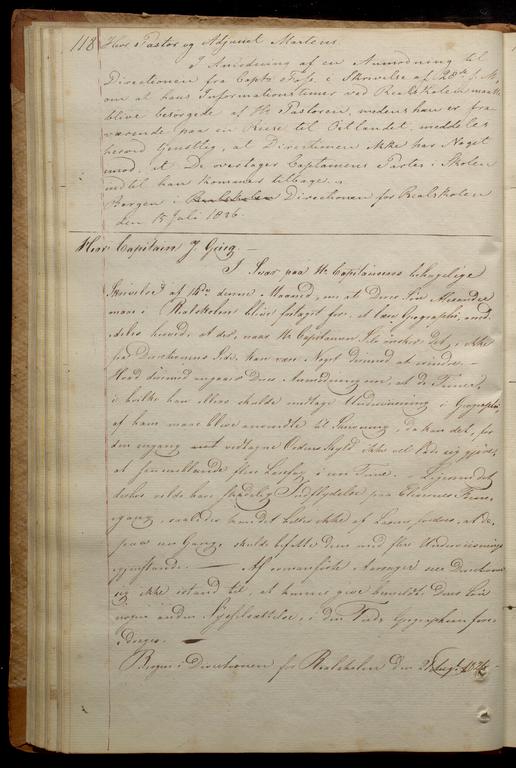 118 Herr Pastor og Adjunct Martens.
I Anledning af en Anmodning til
Directionen fra Captn Foss i Skrivelse af 28de f. M.
om at hans Informationstimer ved Realskolen maatte
blive besørgede af Hr Pastoren, medens han er fra-
værende paa en Reise til Østlandet, meddeles
herved Gjenslig, at Directionen Ikke har Noget
imod, at De overtager Capitainens Partes i Skolen
indtil han kommer tilbage.
Bergen i Realskolen Directionen for Realskolen
den 15 Juli 1826.
Herr Capitain J. Grieg.
I Svar paa Hr Capitainens behagelige
Skrivelse af 14de denne Maaned, om at Deres Søn Alexander
maa i Realskolen blive fritaget for at lære Geographie, med-
deles herved, at det, naar Hr Capitainen Selv ønsker det, ikke
fra Directionens Side kan være Noget derimod at erindre.
Hvad derimod angaaer Deres Anmodning om, at de Timer,
i hvilke han ellers skulde modtage Underviisning i Geographie,
af ham maae blive anvendte til Skrivning, da kan det, for
den engang vedtagne Ordens Skyld ikke vel lade sig gjøre,
at sammenblande flere Lærefag i een Time. Ligesom det
desuden vilde have skadelig Indflydelse paa Elevernes Frem-
gang, saaledes kan det heller ikke af Læreren fordres, at de
paa een Gang, skulde befatte dem med flere Underviisnings-
gjenstande. Af ovenanførte Aarsager seer Directionen
sig ikke istand til, at kunne give bemeldte Deres Søn
nogen anden Sysselsættelse, i den Tid Geographien fore-
drages.
Bergen i Directionen for Realskolen den 21 Augt. 1826